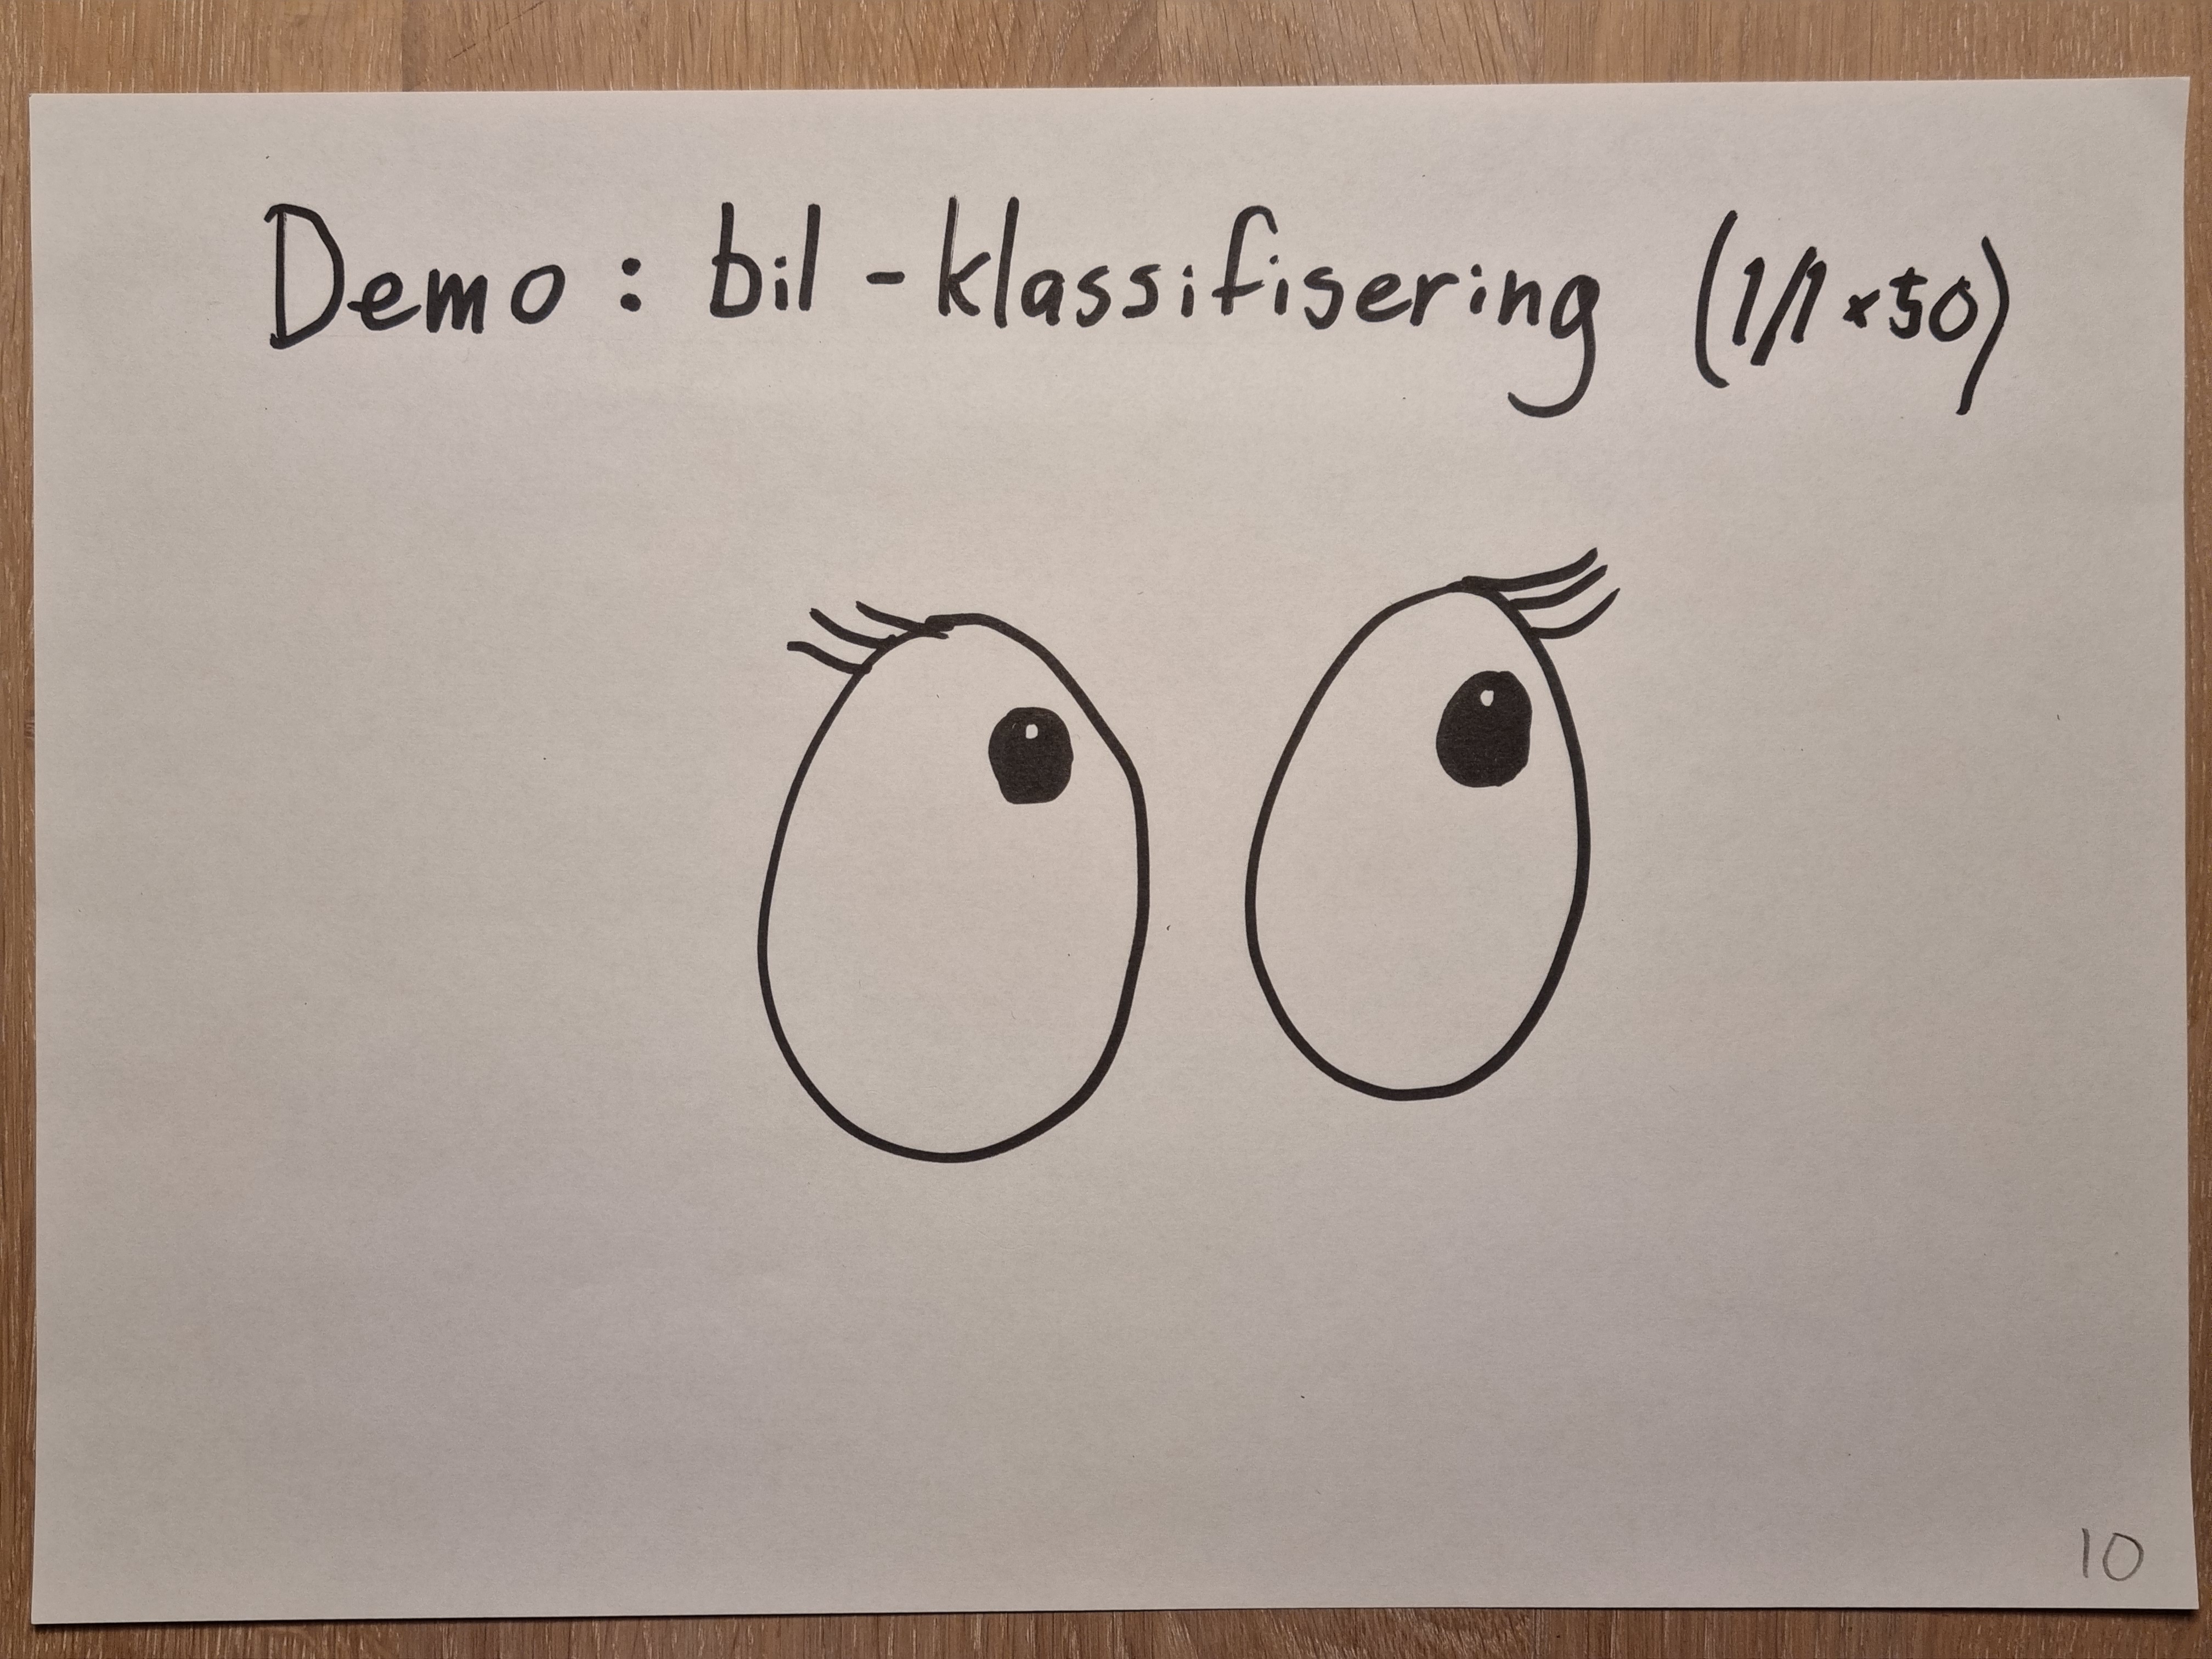 Demo : bil - klassifisering (1/1 x 50)
10